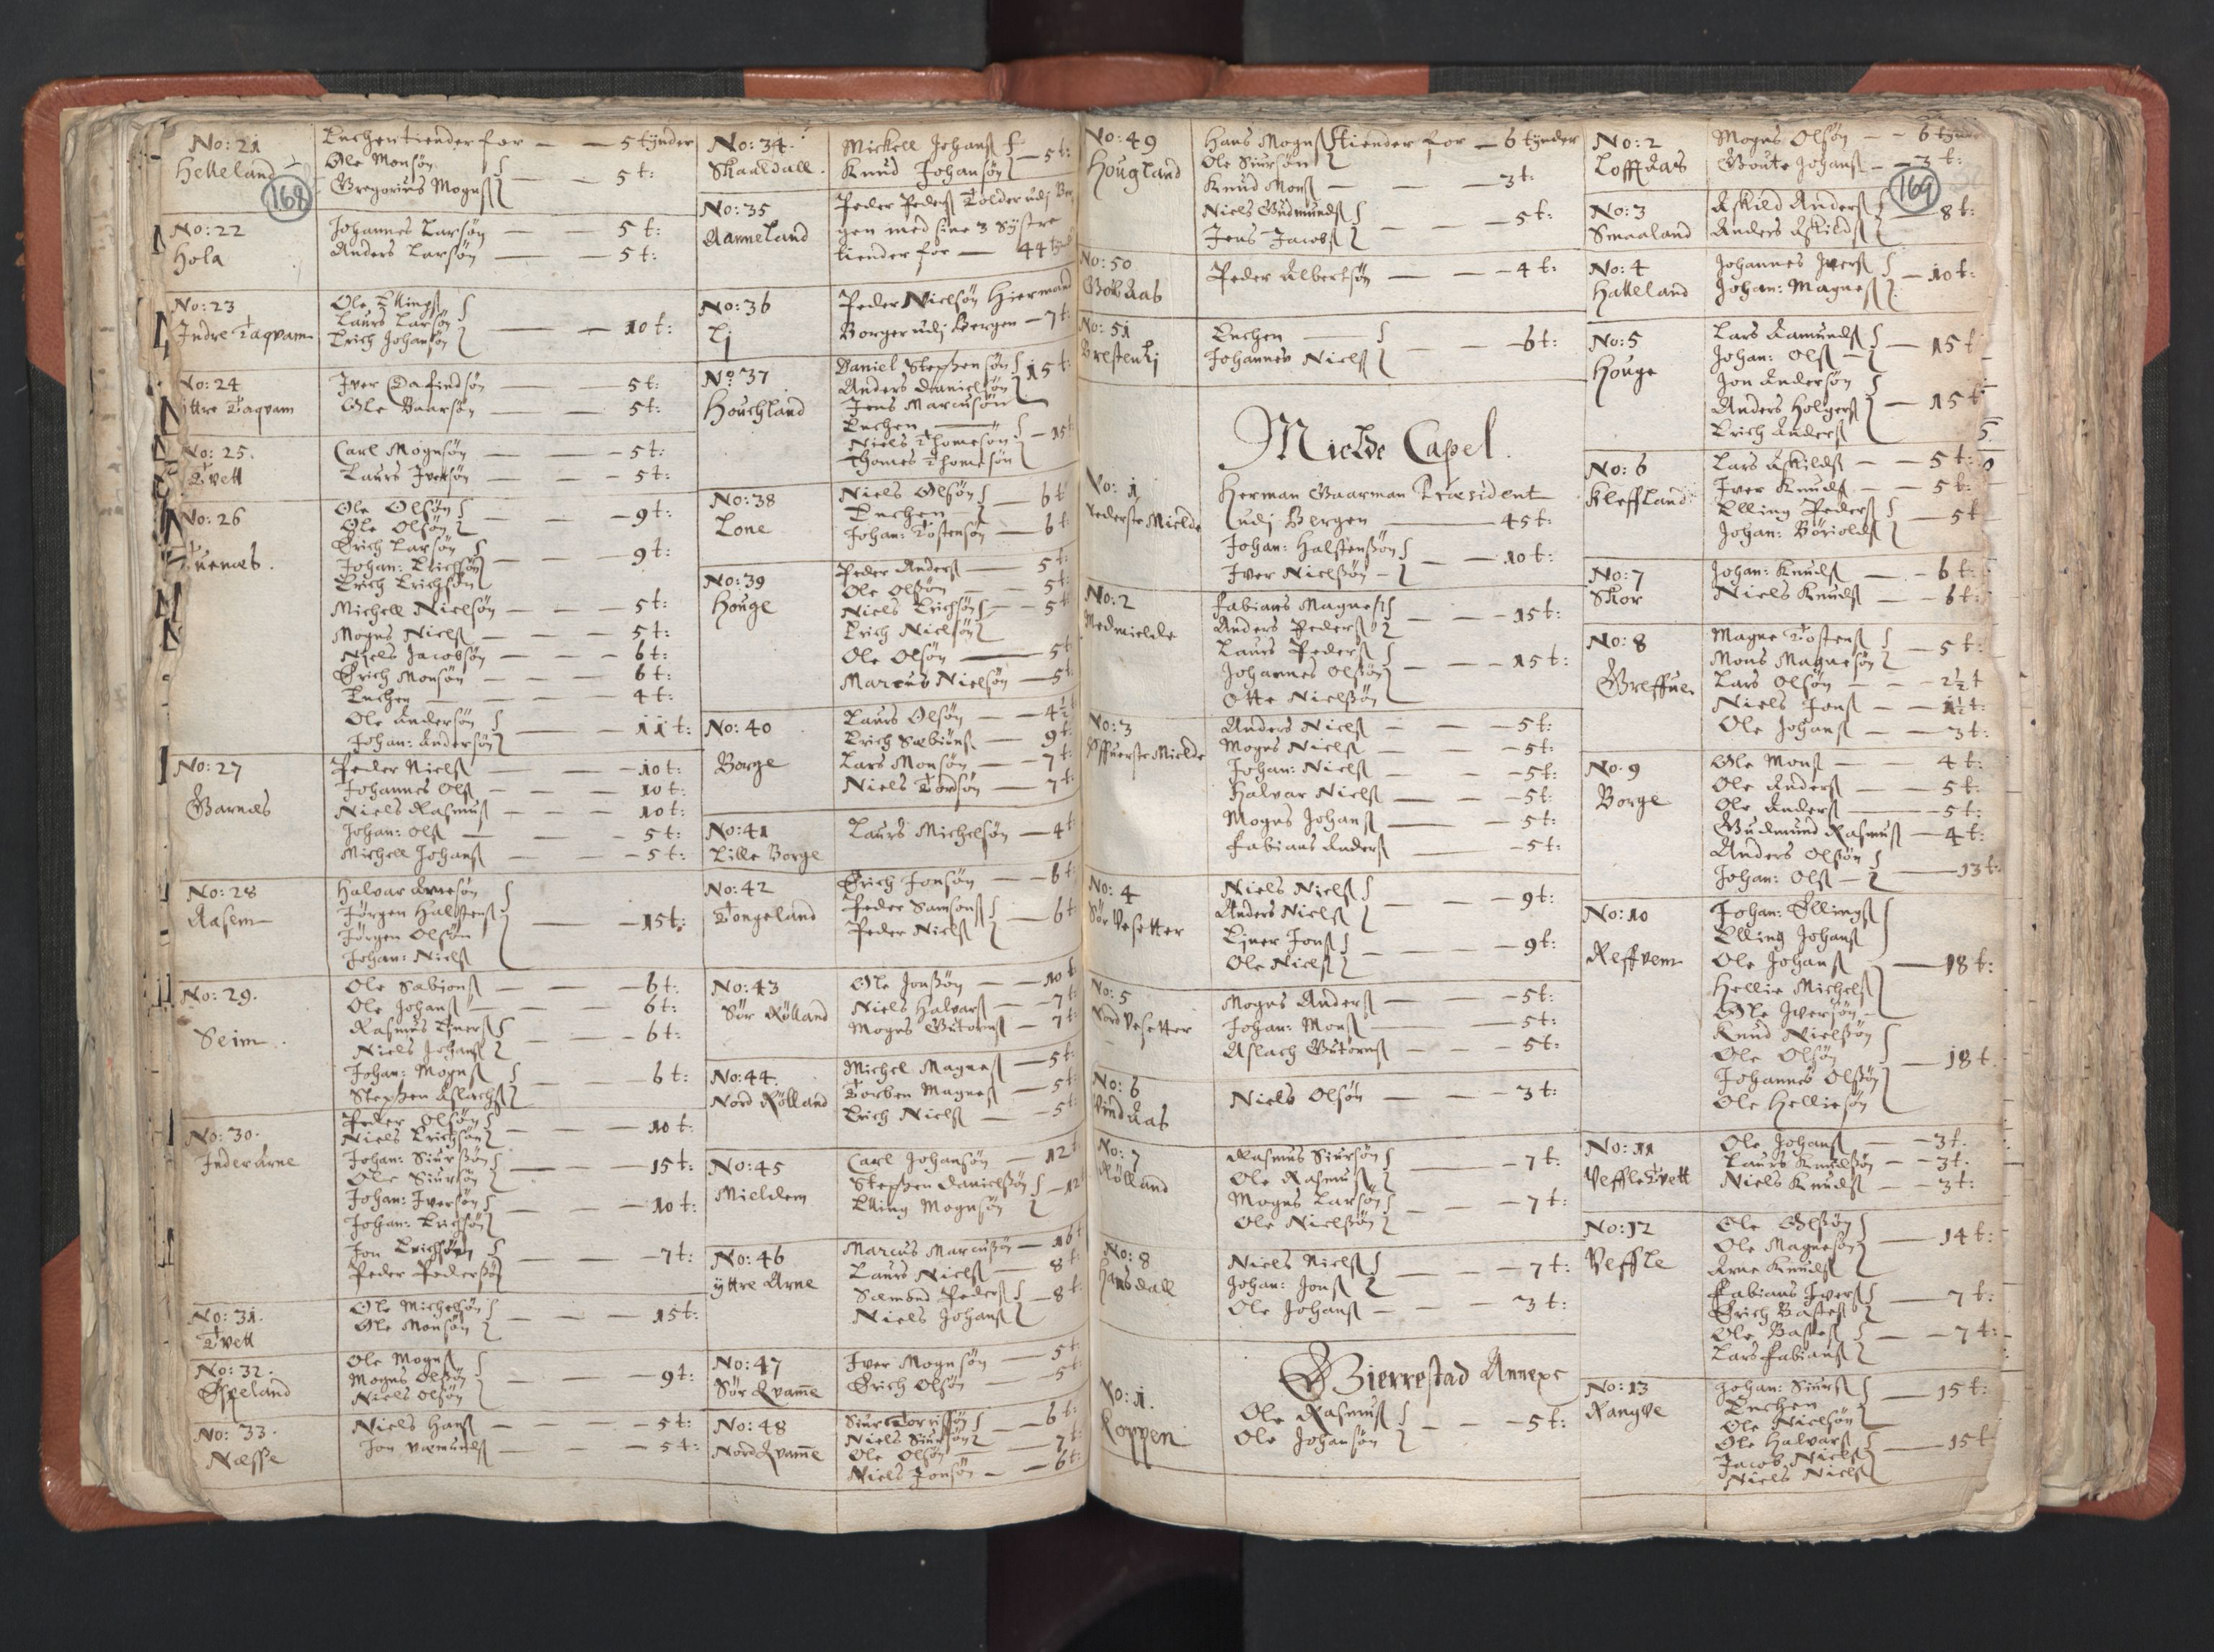 168
No: 21
Helleland
Enchen tiender for — — 5 tynder
Ole Monsøn
Gregorius Mognß — — 5 t:
No: 22
Hola
Johannes Larsøn — — 5 t:
Anders Larsøn — — 5 t:
No: 23
Indre Taqvam
Ole Ellingß
Laurs Larsøn
Erich Johansøn — — 10 t:
No: 24
Yttre Taqvam
Iver Dafindsøn — — 5 t:
Ole Baarsøn — — 5 t:
No: 25.
Tvett
Carl Mognsøn — — 5 t:
Laurs Iversøn — — 5 t:
No: 26
Tuenæs.
Ole Olsøn
Ole Olsøn — — 9 t:
Erich Larsøn
Johan: Erichsøn
Erich Erichsøn — — 9 t:
Michell Nielsøn — — 5 t:
Mogns Nielß — — 5 t:
Niels Jacobsøn — — 6 t:
Erich Monsøn — — 6 t:
Enchen — — 4 t:
Ole Andersøn
Johan: Andersøn — — 11 t:
No: 27
Garnæs
Peder Nielß — — 10 t:
Johannes Olß — — 10 t:
Niels Rasmuß — — 10 t:
Johan: Olß — — 5 t:
Michell Johanß — — 5 t:
No: 28
Aasem
Halvar Arnesøn
Jørgen Halstenß
Jørgen Olsøn
Johan: Nielß — — 15 t:
No: 29.
Seim
Ole Sæbionß — — 6 t:
Ole Johanß — — 6 t:
Rasmus Enerß
Niels Johanß — — 6 t:
Johan: Mognß
Stephen Aslachß — — 6 t:
No: 30.
Inder Arne
Peder Olsøn
Niels Erichsøn — — 10 t:
Johan: Siurßøn
Ole Siursøn — — 15 t:
Johan: Iversøn
Johan: Erichsøn — — 10 t:
Jon Erichsøn
Peder Pederßøn — — 7 t:
No: 31.
Tvett
Ole Michelsøn
Ole Monsøn — — 15 t:
No: 32.
Espeland
Ole Mognß
Mogns Olsøn
Niels Olsøn — — 9 t:
No: 33.
Næsse
Niels Hanß — — 5 t:
Jon Væmundß — — 5 t:
No: 34.
Skaaldall.
Mickell Johanß
Knud Johansøn — 5 t:
No: 35
Aanneland
Peder Pederß Tolder udj Ber
gen med sine 3 Systre
tiender for — 44 tynd
No: 36
Lj
Peder Nielsøn Hiermand
Borger udj Bergen — 7 t:
No: 37
Houchland
Daniel Stephensøn
Anders Danielsøn
Jens Marcusøn 15 t:
Enchen —
Niels Thomesøn
Thomes Thomesøn — 15 t
No: 38
Lone
Niels Olsøn
Enchen — — 6 t
Johan: Tostensøn — 6 t
No: 39
Houge
Peder Anderß — 5 t:
Ole Olsøn — 5 t:
Niels Erichsøn
Erich Nielsøn — 5 t
Ole Olsøn — 5 t
Marcus Nielsøn — 5 t
No: 40
Borge
Laurs Olsøn — — 4½ t
Erich Sæbiønß — 9 t:
Lars Monsøn — — 7 t:
Niels Tordsøn — 7 t:
No: 41
Lille Borge
Laurs Michelsøn — 4 t
No: 42
Tongeland
Erich Jonsøn — — 6 t
Peder Samsonß
Peder Nielß — 6 t
No: 43
Sør Rølland
Ole Jonßøn — — 10 t
Niels Halvarß — — 7 t
Mogns Gutormß — 7 t
No: 44.
Nord Rølland
Michel Magneß — 5 t:
Torben Magneß — 5 t
Erich Nielß — — 5 t
No: 45
Mieldem
Carl Johansøn — 12 t
Stephen Danielsøn
Elling Mognsøn — 12
No: 46
Yttre Arne
Marcus Marcusøn — 16 t
Laurs Nielß — 8 t
Sæmond Pederß
Niels Johanß — 8 t:
No: 47
Sør Qvamme
Iver Mognsøn — 5 t
Erich Olsøn — — 5
No: 48
Nord Qvamme
Siur Torrissøn
Niels Siursøn — 6 t:
Ole Olsøn — 7 t:
Niels Jonsøn — — 6 t:
169
No: 49
Hougland
Hans Mognß tiender for — 6 tynder
Ole Siursøn
Knud Monß — — 3 t:
Niels Gudmundß
Jens Jacobß — — 5 t:
No: 50
Peder Albertsøn — — 4 t:
No: 51
Bresten Lj
Enchen
Johannes Nielß — — 6 t:
Mielde Capel.
No: 1
Nederste Mielde
Herman Gaarman Præsident
udj Bergen — 45 t:
Johan: Halstenßøn
Iver Nielßøn — — 10 t:
No: 2
Medmielde
Fabians Magneß
Anders Pederß — — 15 t:
Laurs Pederß
Johannes Olßøn
Otte Nielßøn — — 15 t:
No: 3
Øffuerste Mielde
Anders Nielß — — 5 t:
Mogns Nielß — — 5 t:
Johan: Nielß — — 5 t:
Halvar Nielß — — 5 t:
Mogns Johanß — 5 t:
Fabians Anderß — 5 t:
No: 4
Sør Vesetter
Niels Nielß
Anders Nielß — — 9 t:
Ejner Jonß
Ole Nielß — — 9 t:
No: 5
Nord Vesetter
Mogns Anderß — — 5 t:
Johan: Monß — 5 t:
Aslach Gutormß — — 5 t:
No: 6
Vind Aas
Niels Olsøn — — 3 t:
No: 7
Rølland
Rasmus Siursøn
Ole Rasmuß — 7 t:
Mogns Larsøn
Ole Nielßøn — — 7 t:
No: 8
Hansdall
Niels Nielß
Johan: Jonß — — 7 t:
Ole Johanß — — 3 t:
Gierrestad Annexe
No: 1.
Koppen
Ole Rasmuß
Ole Johansøn — — 5 t:
No: 2
Loff Aas
Mogns Olsøn — — 6 tynder
Goute Johanß — 3 t:
No: 3
Smaaland
Askild Anderß
Anders Askildß — 8 t:
No: 4
Halleland
Johannes Iverß
Johan: Magneß — 10 t:
No: 5
Houge
Lars Aamundß
Johan: Olß — — 15 t
Jon Andersøn
Anders Holgerß
Erich Anderß — 15 t
No: 6
Kleffland
Lars Askildß — — 5 t:
Iver Knudß — — 5 t:
Elling Pederß
Johan: Børioldß — 5 t
No: 7
Skor
Johan: Knudß — — 6 t:
Niels Knudß — — 6 t:
No: 8
Greffue
Magne Tostenß
Mons Magnesøn — 5 t:
Lars Olsøn — — 2½ t
Niels Jonß — — 1½ t:
Ole Johanß — — 3 t:
No. 9
Borge
Ole Monß — — 4 t:
Ole Anderß — — 5 t:
Ole Anderß — 5 t:
Gudmund Rasmuß — 4 t:
Anders Olsøn
Johan: Olß — 13 t:
No: 10
Reffvem
Johan: Ellingß
Elling Johanß
Ole Johanß — 18 t:
Hellie Michelß
Ole Iversøn
Knud Nielßøn
Ole Olsøn
Johannes Olßøn — 18 t
Ole Helliesøn
No: 11
Veffle Tvett
Ole Johanß — — 3 t.
Laurs Knudßøn — — 3 t:
Niels Knudß — — 3 t:
No: 12
Veffle
Ole Olßøn
Ole Magnesøn
Arne Knudß — 14 t:
Fabians Iverß
Erich Basteß — 7 t:
Ole Basteß
Lars Fabianß — — 7 t:
No: 13
Rangve
Johan: Siurß
Enchen
Ole Nielsøn — 15 t:
Ole Halvarß
Jacob Nielß
Niels Nielß — 15 t